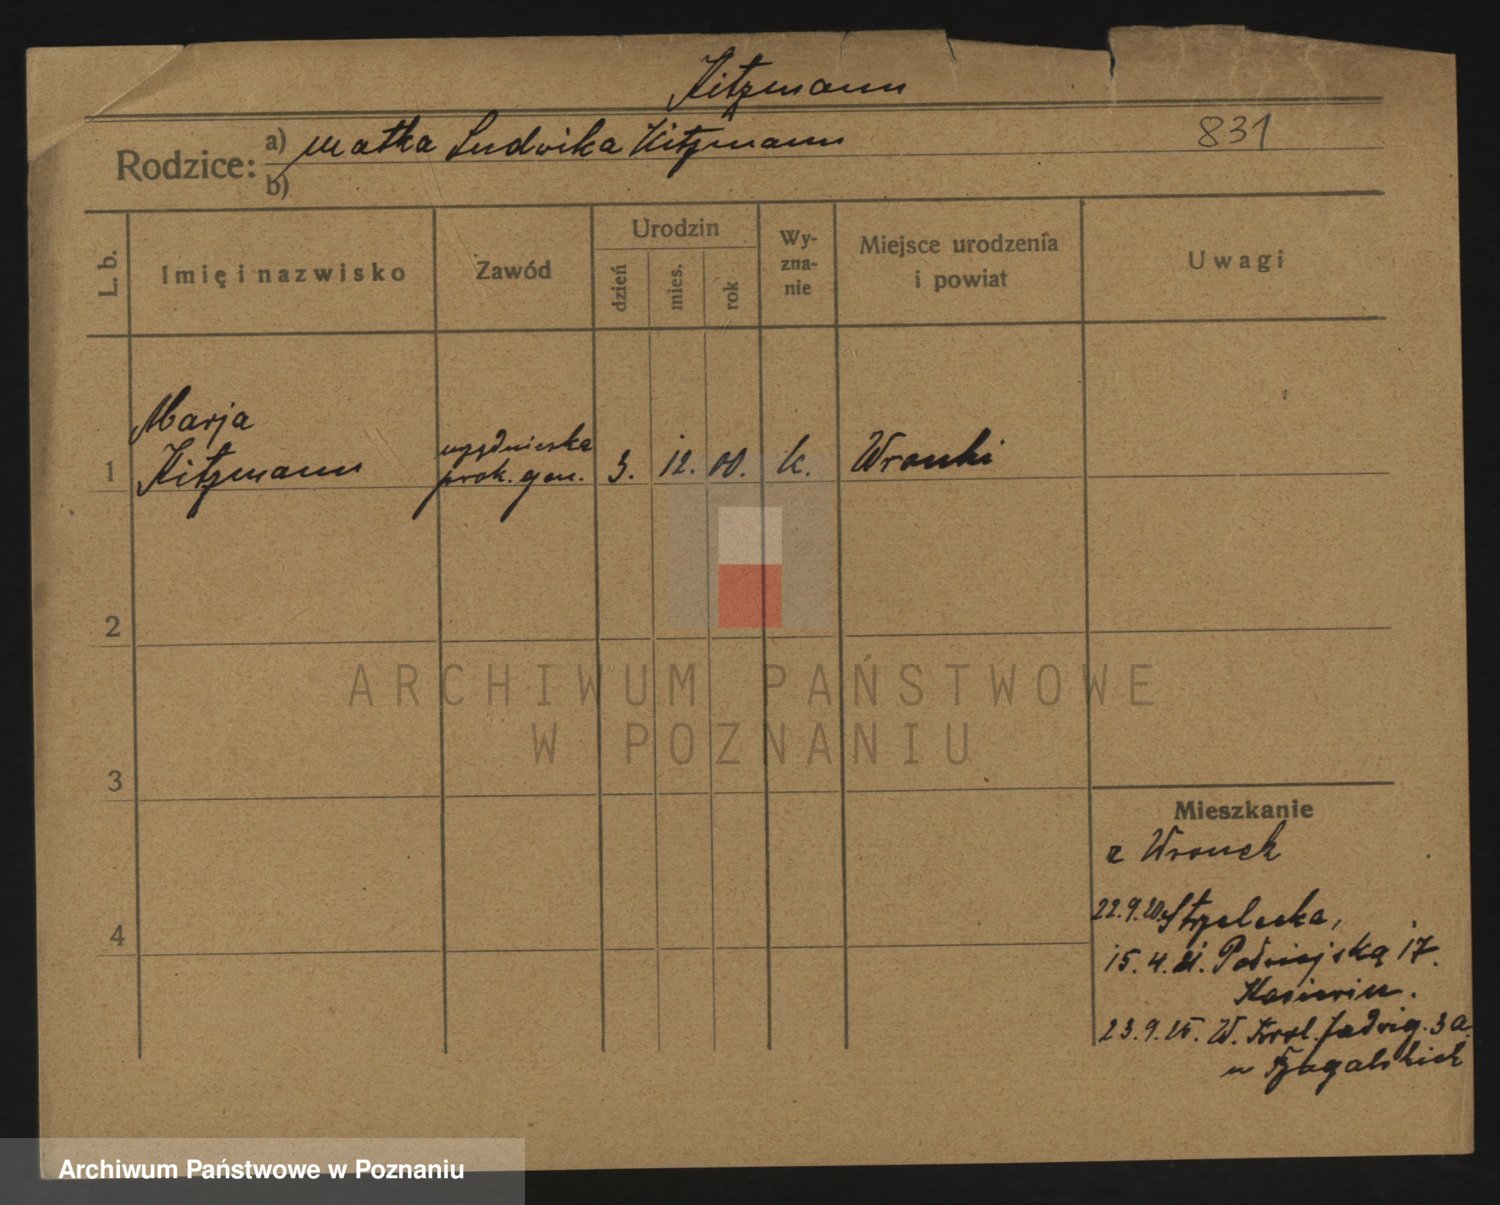 Kitzmann
831
Rodzice: a) matka Ludwika Kitzmann
b)
L. b.
Imię i nazwisko
Zawód
Urodzin
dzień
mies.
rok
Wy-
zna-
nie
Miejsce urodzenia
i powiat
Uwagi
Marja
1 Kitzmann
urzędniczka
prok. gen.
3. 12. 00. k. Wronki
2
3
4
ARCHIWUM PAŃSTWOWE
W POZNANIU
Mieszkanie
z Wronek
22.9.20. Strzelecka,
15.4.21. 17.
23.9.25. W. Król. Jadwig. 3a
u
Archiwum Państwowe w Poznaniu